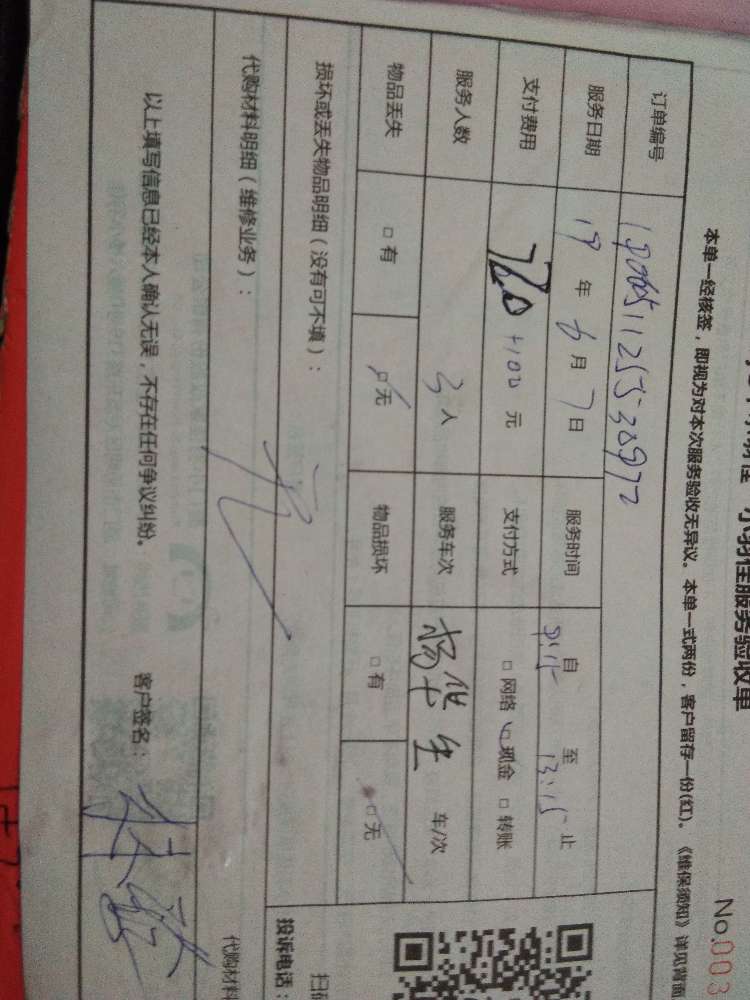 小羽佳服务验收单
No.003
本单一经核签，即视为对本次服务验收无异议。本单一式两份，客户留存一份(红)。《维保须知》详见背面
订单编号
服务日期 19年6月7日 服务时间 自8:15至13:15止
支付费用 720+100元 支付方式 □网络 □现金 □转账
服务人数 3人 服务车次 杨华生 车/次
物品丢失 □有 □无 物品损坏 □有 □无
损坏或丢失物品明细（没有可不填）：
代购材料明细（维修业务）： 无
代购材料
投诉电话：
以上填写信息已经本人确认无误，不存在任何争议纠纷。 客户签名：